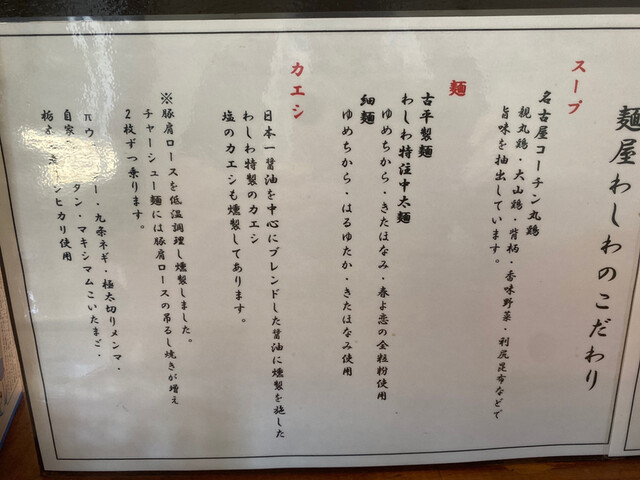 麺屋わしわのこだわり
スープ
名古屋コーチン丸鶏
親丸鶏・大山鶏・背柄・香味野菜・利尻昆布などで
旨味を抽出しています。
麺
古平製麺
わしわ特注中太麺
ゆめちから・きたほなみ・春よ恋の全粒粉使用
細麺
ゆめちから・はるゆたか・きたほなみ使用
カエシ
日本一醤油を中心にブレンドした醤油に燻製を施した
わしわ特製のカエシ
塩のカエシも燻製してあります。
※豚肩ロースを低温調理し燻製しました。
チャーシュー麺には豚肩ロースの吊るし焼きが増え
2枚ずつ乗ります。
πウ ー・九条ネギ・極太切りメンマ・
自家 タン・マキシマムこいたまご・
栃木 シヒカリ使用